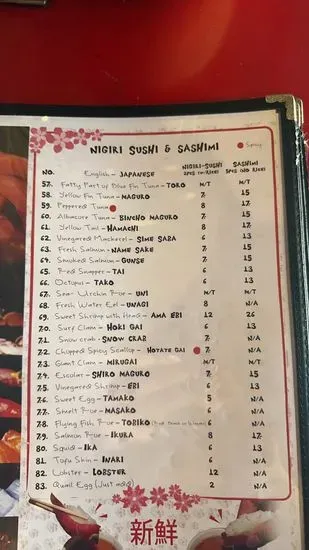 NIGIRI SUSHI & SASHIMI
Spicy
NIGIRI-SUSHI SASHIMI
NO. English - JAPANESE 2PCS (W/RICE) 5PCS (NO RICE)
57. Fatty Part of Blue Fin Tuna - TORO M/T M/T
58. Yellow Fin Tuna - MAGURO 7 15
59. Peppered Tuna 8 17
60. Albacore Tuna - BINCHO MAGURO 7 15
61. Yellow Tail - HAMACHI 8 17
62. Vinegared Mackerel - SIME SABA 6 13
63. Fresh Salmon - NAME SAKE 7 15
64. Smoked Salmon - GUNSE 7 15
65. Red Snapper - TAI 6 13
66. Octopus - TAKO 6 13
67. Sea Urchin Roe - UNI M/T M/T
68. Fresh Water Eel - UNAGI 8 N/A
69. Sweet Shrimp with Head - AMA EBI 12 26
70. Surf Clam - HOKI GAI 6 13
71. Snow crab - SNOW CRAB 7 N/A
72. Chopped Spicy Scallop - HOTATE GAI 7 N/A
73. Giant Clam - MIRUGAI M/T M/T
74. Escolar - SHIRO MAGURO 7 15
75. Vinegared Shrimp - EBI 6 13
76. Sweet Egg - TAMAKO 5 N/A
77. Smelt Roe - MASAKO 6 N/A
78. Flying Fish Roe - TORIKO 6 N/A
79. Salmon Roe - IKURA 8 17
80. Squid - IKA 6 13
81. Tofu Skin - INARI 6 N/A
82. Lobster - LOBSTER 12 N/A
83. Quail Egg (Just add) 2 N/A
新鮮